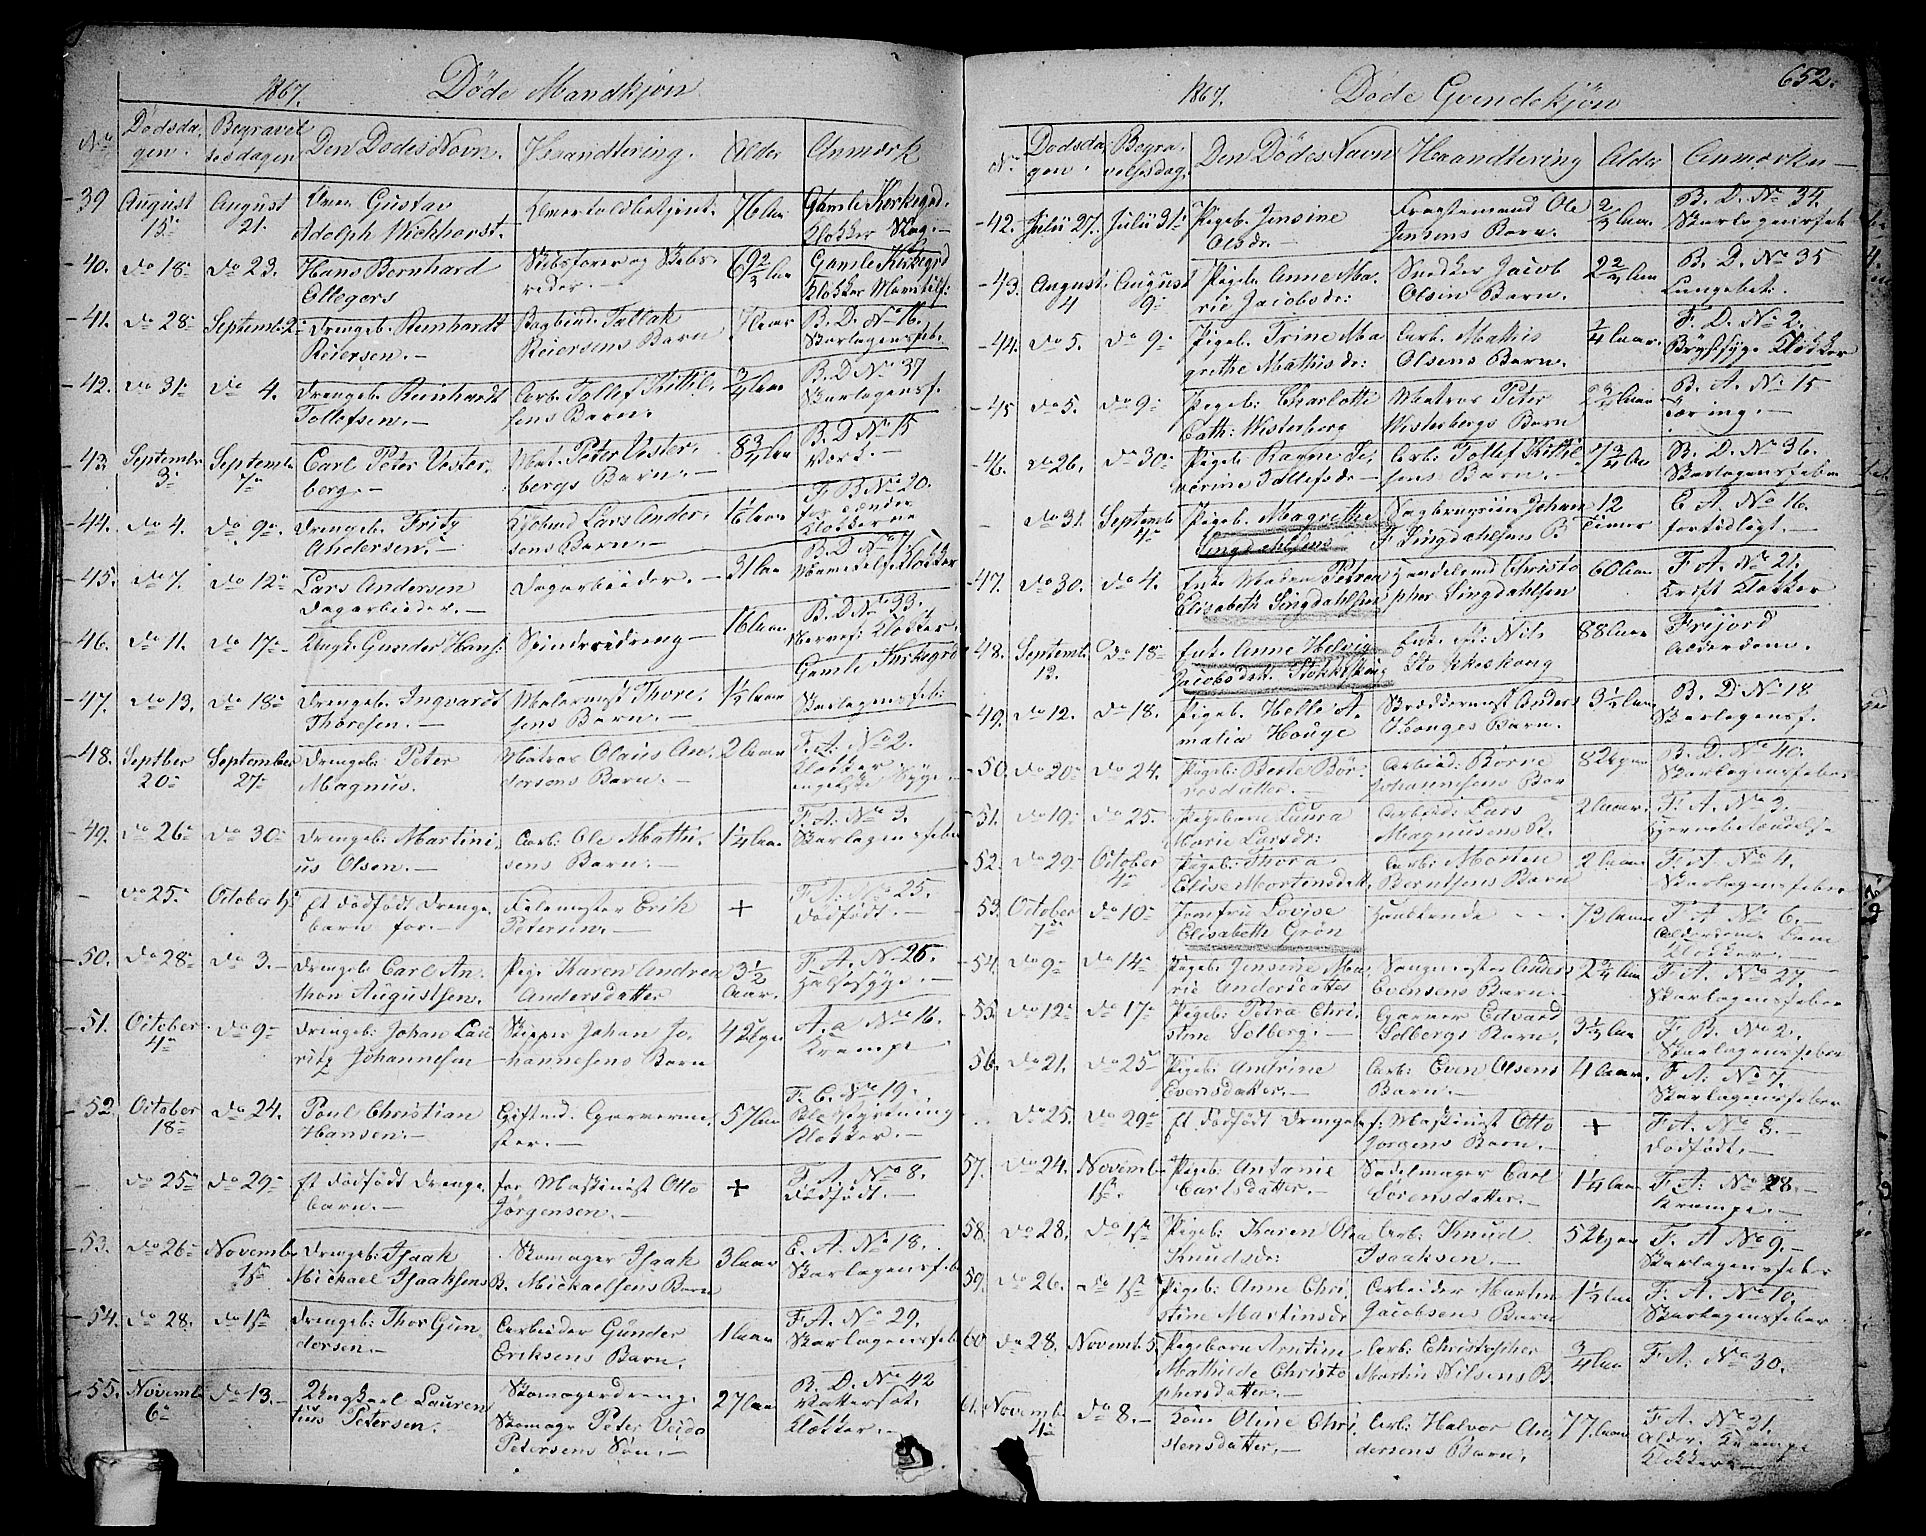 1867. Döde Mandkjøn
No Dødsdagen. Begravelsesdagen Den Dødes Navn. Haandtering. Alder Anmærk
39 August 15de August 21. Gustav Adolph 76 Aar Gamle Kirkegrd. Klokker
40. do 18de do 23. Hans Bernhard Ollegers 69 2/3 Aar Gamle Kirkegrd Klokker
41. do 28de Septemb: 2 Drengeb. Reinhardt Reiersen. Reiersens Barn B. D. No 16. Skarlagensfeb.
42. do 31te do 4. Drengeb. Reinhardt Tollefsen. Arb. Tollef Kittilsens Barn. 3/4 Aar B. D. No 37 Skarlagensf.
43. Septembr 3de Septemb 7de Carl Peter Vesterberg. Mat. Peter Vesterbergs Barn. 8 3/4 Aar B. D. No 15
44. do 4. do 9de Drengeb. Fritz Andersen. Lars Andersens Barn. F. B. No 20. Klokkerne
45. do 7. do 12te Lars Andersen Dagarbeider. Dagarbeider. 31 Aar B. D. Klokker
46. do 11. do 17de Ungk. Gunder Hans: 16 Aar B. D. No 33. Klokker.
Gamle Kirkegrd
47. do 13. do 18de Drengeb. Ingvardt Thoresen. Malermest Thoresens Barn. 1 1/2 Aar Skarlagensfeb:
48. Septber 20de September 27de Drengeb: Peter Magnus. Matros Olaus Andersens Barn. 2 Aar F. A. No 2. Klokker engelske Syge
49. do 26de do 30te Drengeb. Martinius Olsen. Arb: Ole Mathisens Barn. 1 1/4 Aar F. A. No 3. Skarlagensfeber
do 25de October 1ste Et dödfödt Drengebarn for. Filemester Erik Petersen. + F. A. No 25. dödfödt.
50. do 28de do 3. Drengeb: Carl Anthon Augustsen. Pige Karen Andrea Andersdatter 3 1/2 Aar. F. A. No 26. Halssyge.
51. October 4de do 9de Drengeb: Johan Lauritz Johannesen Skipper Johan Johannesens Barn 4 2 Uger A. a No 16. Krampe
52. October 18de do 24. Poul Christian Hansen. Giftmd. Garvermester. 57 Aar F. C. No 19. Klokker.
do 25de do 29de Et dödfödt Drengebarn. for Maskinist Otto Jörgensen. + F. A. No 8. dödfödt.
53. do 26de Novemb 1ste Drengeb: Isaak Mickael Isaaksen Skomager Isaak B. Mickaelsens Barn 3 Aar E. A. No 18. Skarlagensfeb
54. do 28. do 1ste Drengeb: Thor Gundersen. Arbeider Gunder Eriksens Barn. 1 Aar F. A. No 29. Skarlagensfeb
55. Novemb 6te do 13. Ungkarl Laurentius Petersen. Skomagerdreng Skomagr Peter Petersens Sön. 27 Aar B. D. No 42 Vattersot. Klokker.
1867. Døde Qvindekjön 652.
No Dødsdagen. Begravelsesdag. Den Dödes Navn Haandtering Alder Anmærkn
42. Julii 27. Julii 31te Pigeb. Jensine Olsdr. Ole Jensens Barn. 2 2/3 Aar. B. D. No 34. Skarlagensfeb
43. August 4 August 9de Pigeb. Anne Marie Jacobsdr: Snedker Jacob Olsen Barn. 2 2/3 Aar B. D. No 35 Lungebet:
44. do 5. do 9de Pigeb. Trine Margrethe Mathisdr: Arb. Mathis Olsens Barn. 1/4 Aar. F. D. No 2. Brystsyge Klokker
45 do 5. do 9de Pigeb: Charlotte Cath: Wisterberg Matros Peter Wisterbergs Barn 2 3/4 Aar B. A. No 15 Tæring.
46. do 26. do 30te Pigeb. Ragne Severine Tollefsdr Arb: Tollef Kittilsens Barn. 7 3/4 Aar B. D. No 36. Skarlagensfeber
do 31. Septemb 4de Pigeb. Magrethe Lingdahlsens Johan F Lingdahlsen B 12 Timer E A. No 16. fortidligt.
47. do 30. do 4. Enke Maren Petrea Elisabeth Lingdahlsen Handelsmd Christopher Lingdahlsen 60 Aar F. A. No 21. Kræft Klokker
48. Septemb. 13. do 18de Enke Anne Helvig Jacobsdtr. Stokkeskong Enke eft: Nils Stokkeskong 88 Aar Frijord Alderdom.
49. do 12. do 18. Pigeb. Helle Amalia Houge Skræddermest Anders Houges Barn. 3 1/2 Aar B. D. No 18 Skarlagensf.
50. do 20de do 24. Pigeb: Berte Börresdatter. Arbeid: Börre Johannesens Bar 8 Uger B. D. No 40. Skarlagensfeber
51. do 19. do 25. Pigebarn Laura Marie Larsdr: Arbeid: Lars Magnusens B. 2 Aar. F. A. No 3. Hjernebetændelse
52. do 29. October 4de Pigeb: Thora Elise Mortensdatt. Arb: Morten Berntsens Barn 2 Aar F. A. No 4. Skarlagensfeber
53. October 7de do 10de Jomfru Lovise Elisabeth Grøn 73 Aar F. A. No 6. Klokker.
54. do 9de do 14de Pigeb. Jensine Marie Andersdatter Anders Evensens Barn. 2 3/4 Aar F. A. No 27. Skarlagensfeber
55. do 12te do 17de Pigeb: Petra Christine Solberg. Garver Edvard Solbergs Barn. 3 1/2 Aar F. B. No 2. Skarlagensfeber
56. do 21. do 25de Pigeb: Antrine Evensdatter. Arb: Even Olsens Barn. 4 Aar. F. A: No 7. Skarlagensfeber
do 25. do 29de Et dödfödt Drengeb f: Maskinist Otto Jörgens Barn. + F. A. No 8. Dödfödt.
57. do 24. Novemb 1ste. Pigeb: Antonie Carlsdatter. Sadelmager Carl Sörensdatter. 1 1/4 Aar F. A: No 28. Krampe.
58. do 28. do 1ste Pigeb: Karen Olea Knudsdr: Arb: Knud Isaaksen. 5 Uger F. A No 9. Skarlagensfeber
59. do 26. do 1ste Pigeb: Anne Christine Martinsdr Arbeider Martin Jacobsens Barn 1 1/2 Aar F. A. No 10. Skarlagensfeber
60 do 28. Novemb 5. Pigebarn Antine Mathilde Christophersdatter. Arb: Christopher Martin Nilsens B. 3/4 Aar F. A: No 30.
61. Novemb 4de do 8. Kone Oline Christensdatter. Arb: Halvor Andersens Barn. 77 Aar F. A. No 31. Alder. Krampe Klokker